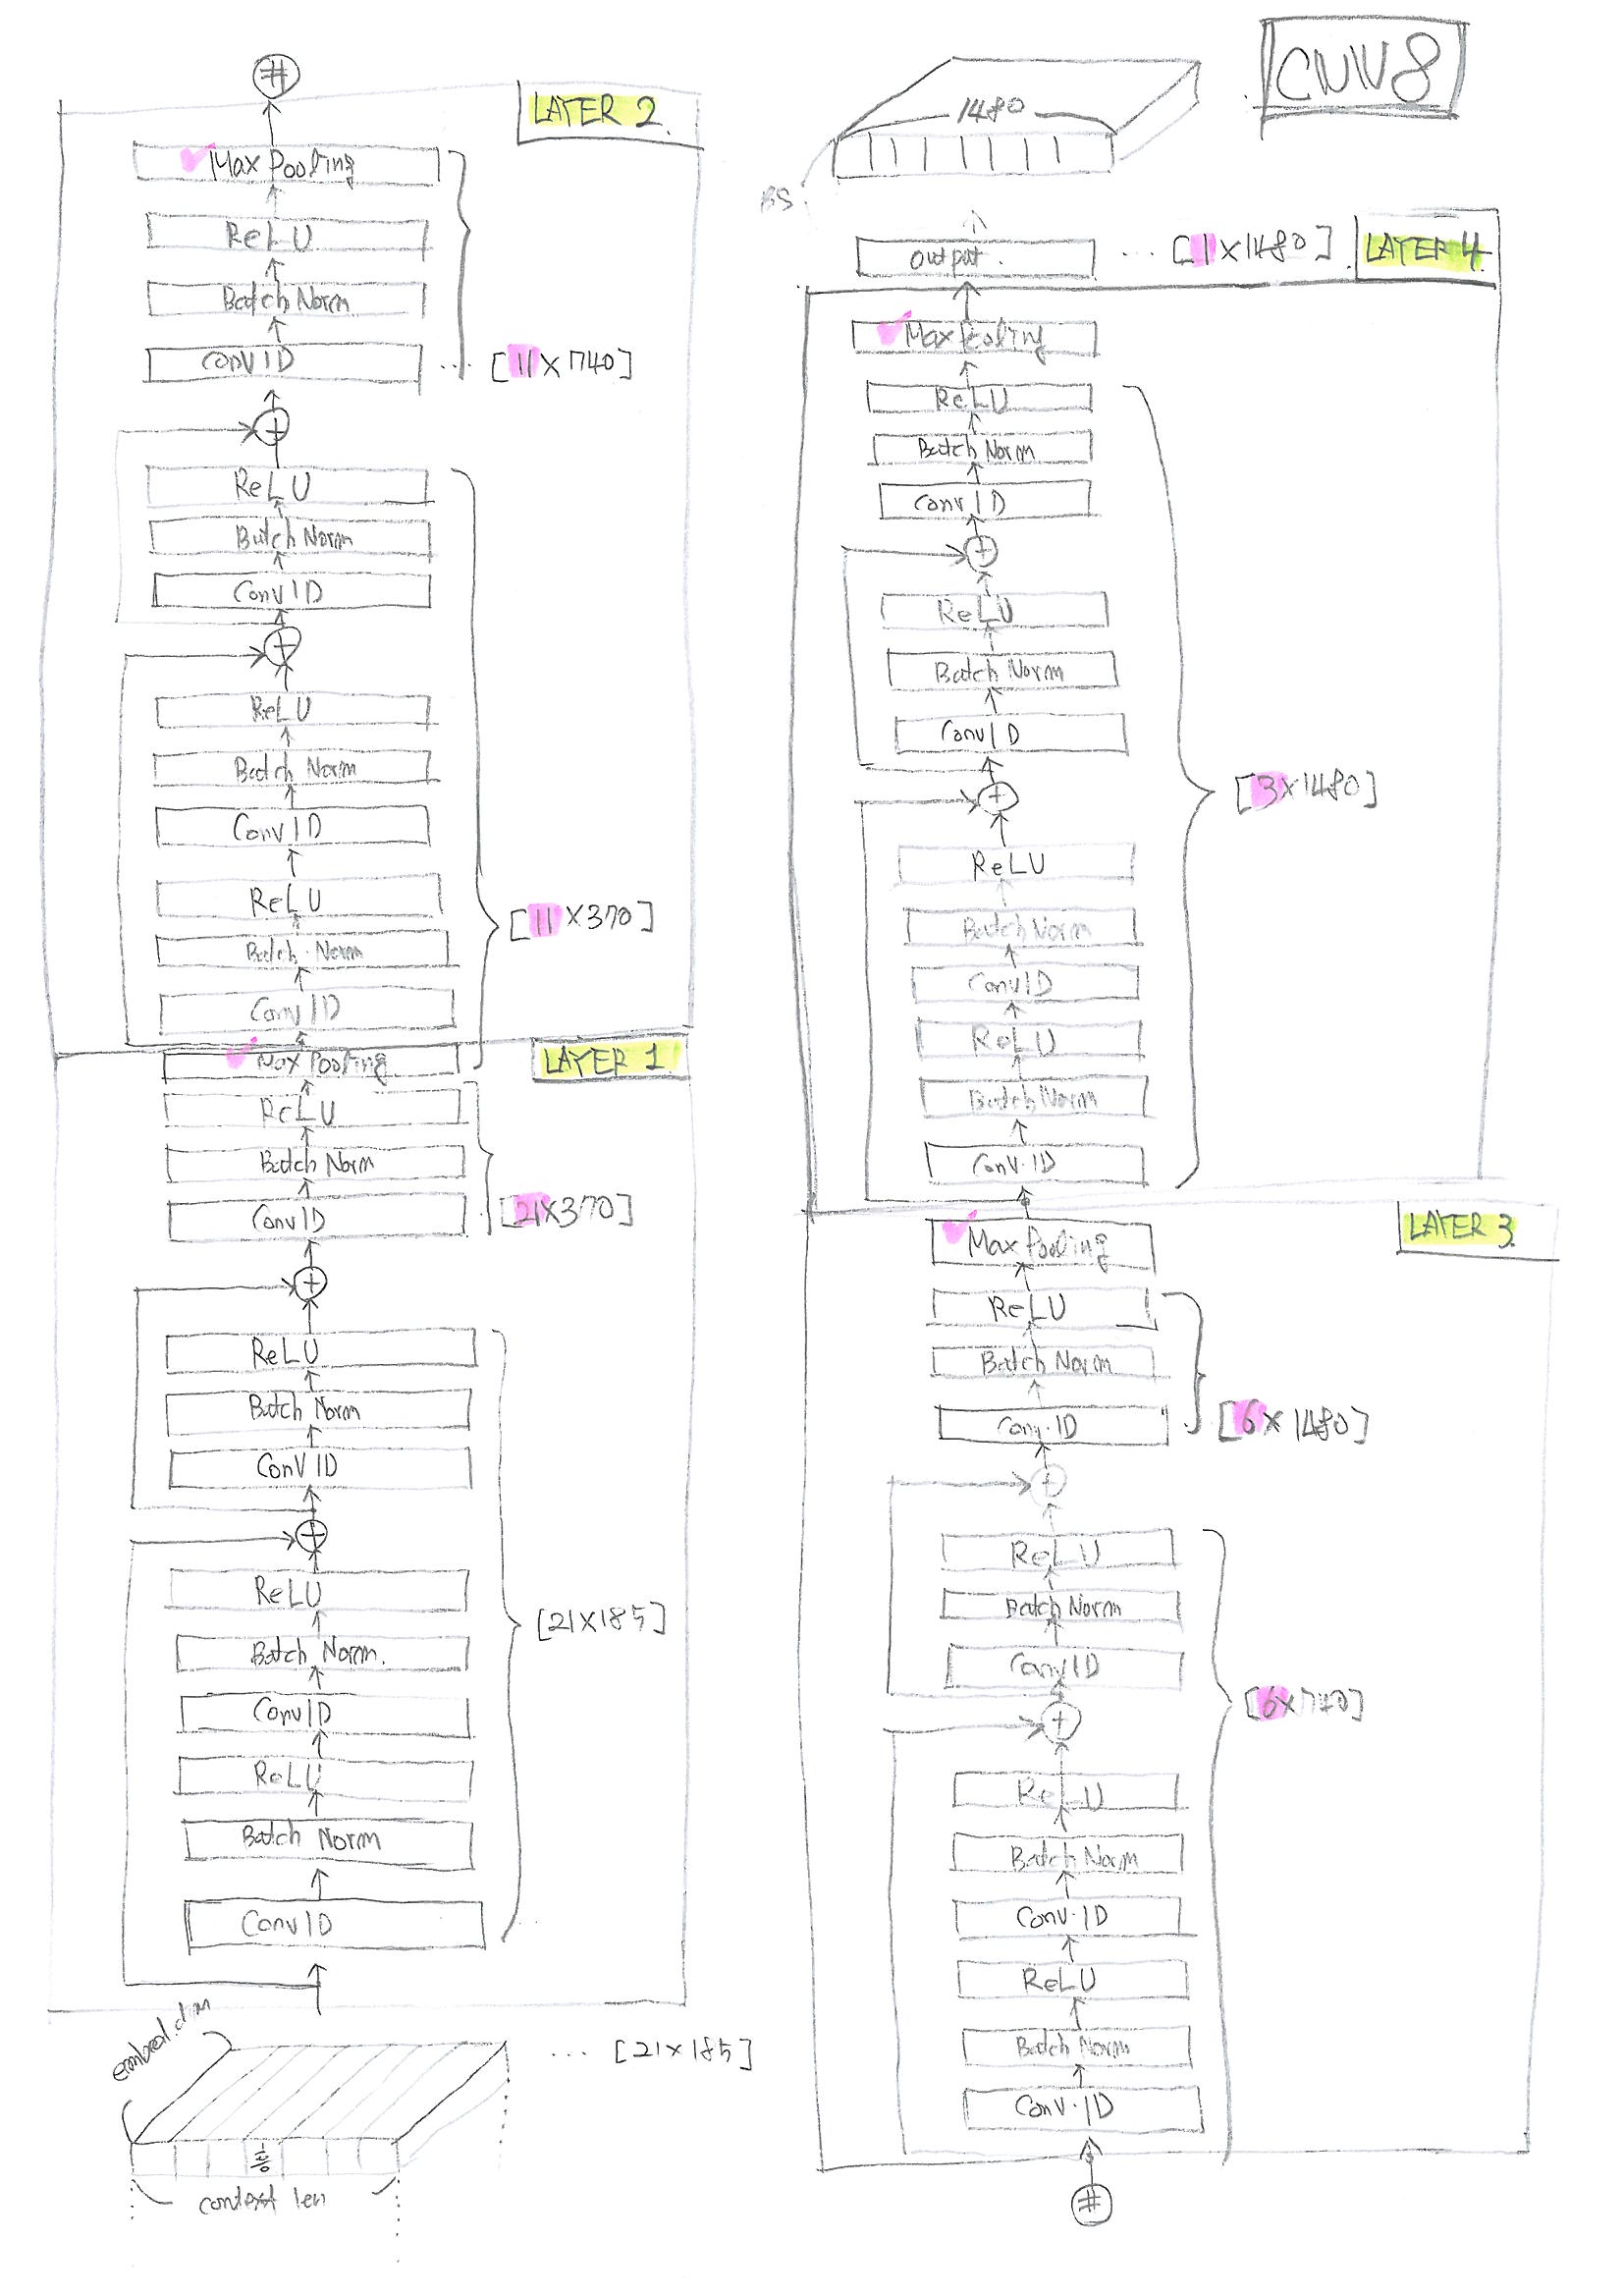 CNN8
#
LAYER 2
Max Pooling
ReLU
Batch Norm
Conv1D
... [11×740]
+
ReLU
Batch Norm
Conv1D
+
ReLU
Batch Norm
Conv1D
ReLU
... [11×370]
Batch Norm
Conv1D
Max Pooling
LAYER 1
ReLU
Batch Norm
Conv1D
[21×370]
+
ReLU
Batch Norm
Conv1D
+
ReLU
[21×185]
Batch Norm.
Conv1D
ReLU
Batch Norm
Conv1D
embed.dim
... [21×185]
context len
1480
BS
output.
... [1×1480]
LAYER 4
Max Pooling
ReLU
Batch Norm
Conv1D
+
ReLU
Batch Norm
Conv1D
+
[3×1480]
ReLU
Batch Norm
Conv1D
ReLU
Batch Norm
Conv.1D
LAYER 3
Max Pooling
ReLU
Batch Norm
Conv.1D
[6×1480]
+
ReLU
Batch Norm
Conv1D
+
[6×740]
ReLU
Batch Norm
Conv.1D
ReLU
Batch Norm
Conv.1D
#